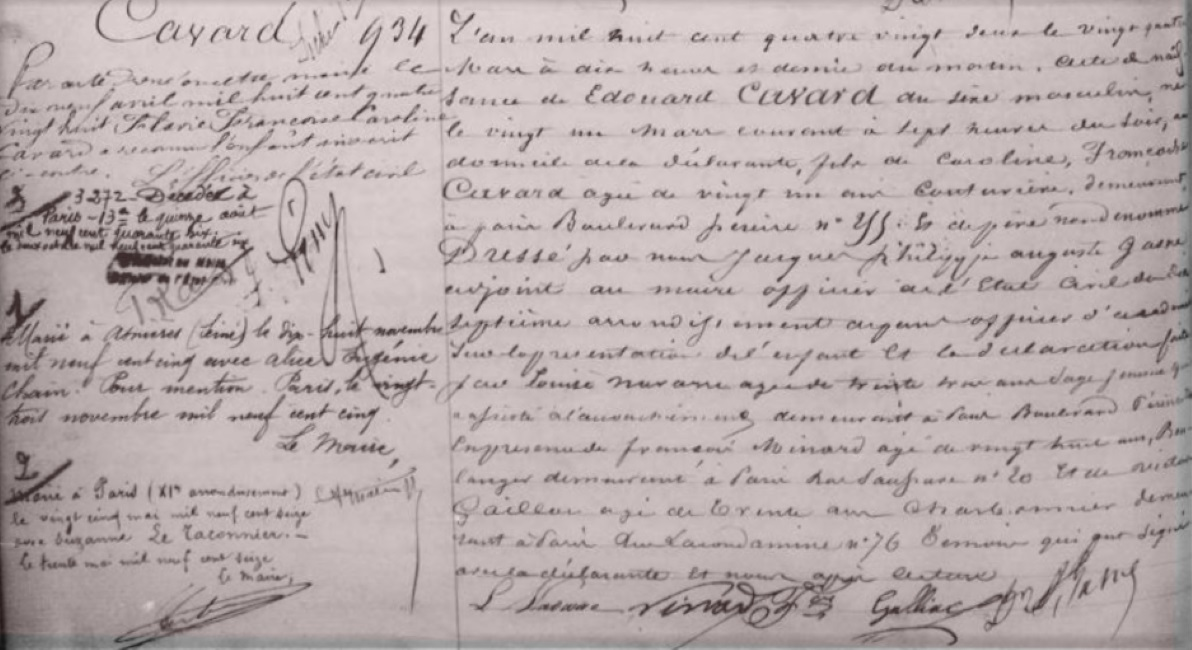 Cavard 934
Par acte
du neuf avril mil huit cent quatre
vingt huit Françoise Caroline
Cavard a reconnu l'enfant inscrit
ci contre. L'officier de l'état civil
3
3272 Décédé à
Paris - 13e le quinze août
mil neuf cent quarante six.
le deux mil neuf cent quarante six
1
Marié à Asnières (Seine) le dix-huit novembre
mil neuf cent cinq avec Alice Eugénie
Chain. Pour mention. Paris, le vingt-
trois novembre mil neuf cent cinq.
Le Maire,
2
Marié à Paris (XIe arrondissement)
le vingt cinq mai mil neuf cent seize
avec Suzanne Le Taconnier. -
le trente mai mil neuf cent seize
le maire,
L'an mil huit cent quatre vingt deux le vingt quatre
Mars à dix heures et demie du matin. Acte de nais
sance de Edouard Cavard du sexe masculin, né
le vingt un Mars courant à sept heures du soir, au
domicile de la déclarante, fils de Caroline, Françoise
Cavard agée de vingt un ans Couturière, demeurant
à paris Boulevard pereire n° 255. Et de père non dénommé
Dressé par nous Jacques Philippe auguste
adjoint au maire officier de l'Etat Civil du dix
septième arrondissement officier d'académie
Sur la présentation de l'enfant Et la déclaration faite
par Louise Navarre agée de trente trois ans Sage femme qui
a assisté à l'accouchement demeurant à Paris Boulevard Péreire
En présence de françois Minard agé de vingt huit ans, Bou
langer demeurant à Paris Rue Saussure n° 20 Et de
Gaillac agé de Trente ans Charbonnier demeu
rant à Paris Rue Lacondamine n° 76 Témoins qui ont signé
avec la déclarante Et nous après lecture
L Navarre Minard Galliac